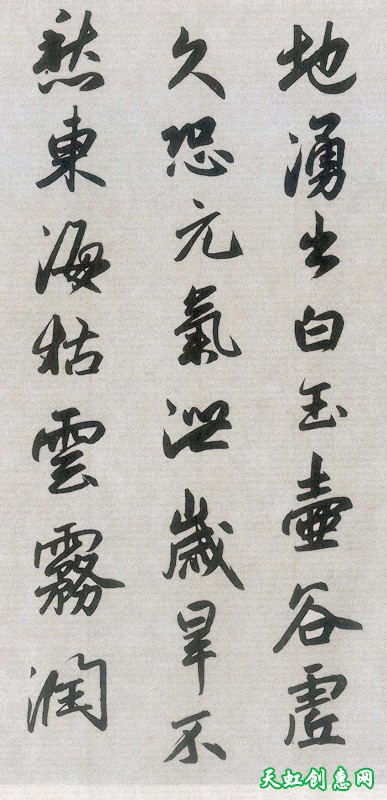 地湧出白玉壺谷虛
久恐元氣泄歲旱不
愁東海枯雲霧潤
天虹创惠网